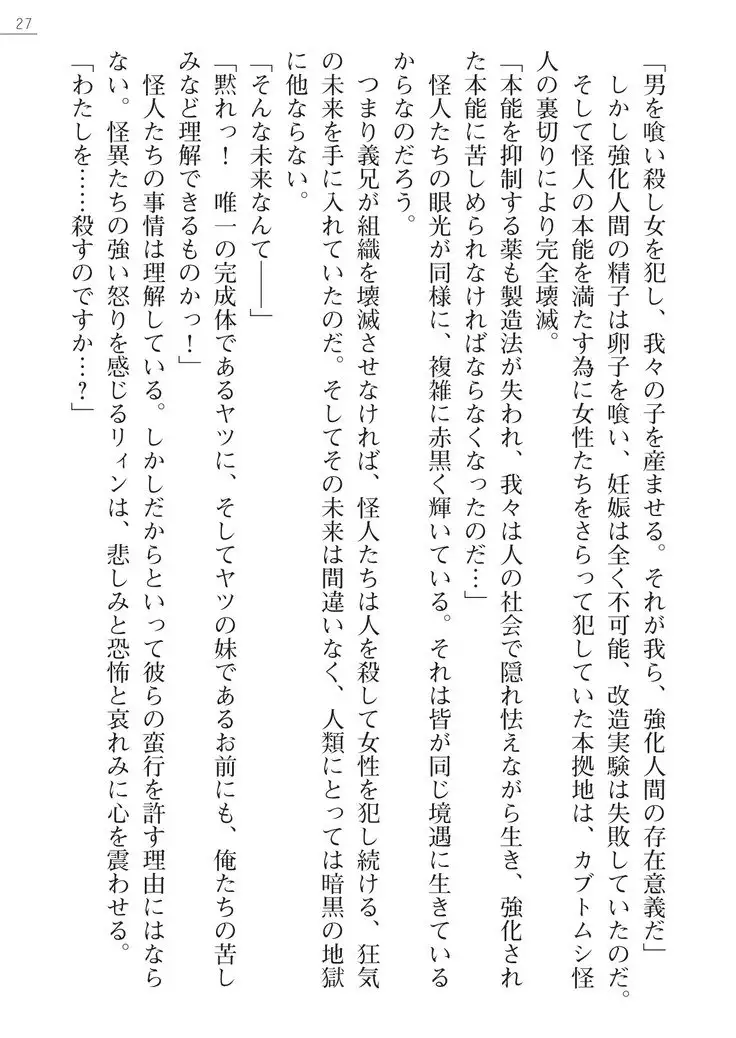 27
「男を喰い殺し女を犯し、我々の子を産ませる。それが我ら、強化人間の存在意義だ」
しかし強化人間の精子は卵子を喰い、妊娠は全く不可能、改造実験は失敗していたのだ。
そして怪人の本能を満たす為に女性たちをさらって犯していた本拠地は、カブトムシ怪
人の裏切りにより完全壊滅。
「本能を抑制する薬も製造法が失われ、我々は人の社会で隠れ怯えながら生き、強化され
た本能に苦しめられなければならなくなったのだ…」
怪人たちの眼光が同様に、複雑に赤黒く輝いている。それは皆が同じ境遇に生きている
からなのだろう。
つまり義兄が組織を壊滅させなければ、怪人たちは人を殺して女性を犯し続ける、狂気
の未来を手に入れていたのだ。そしてその未来は間違いなく、人類にとっては暗黒の地獄
に他ならない。
「そんな未来なんて――」
「黙れっ！　唯一の完成体であるヤツに、そしてヤツの妹であるお前にも、俺たちの苦し
みなど理解できるものかっ！」
怪人たちの事情は理解している。しかしだからといって彼らの蛮行を許す理由にはなら
ない。怪異たちの強い怒りを感じるリィンは、悲しみと恐怖と哀れみに心を震わせる。
「わたしを……殺すのですか…？」